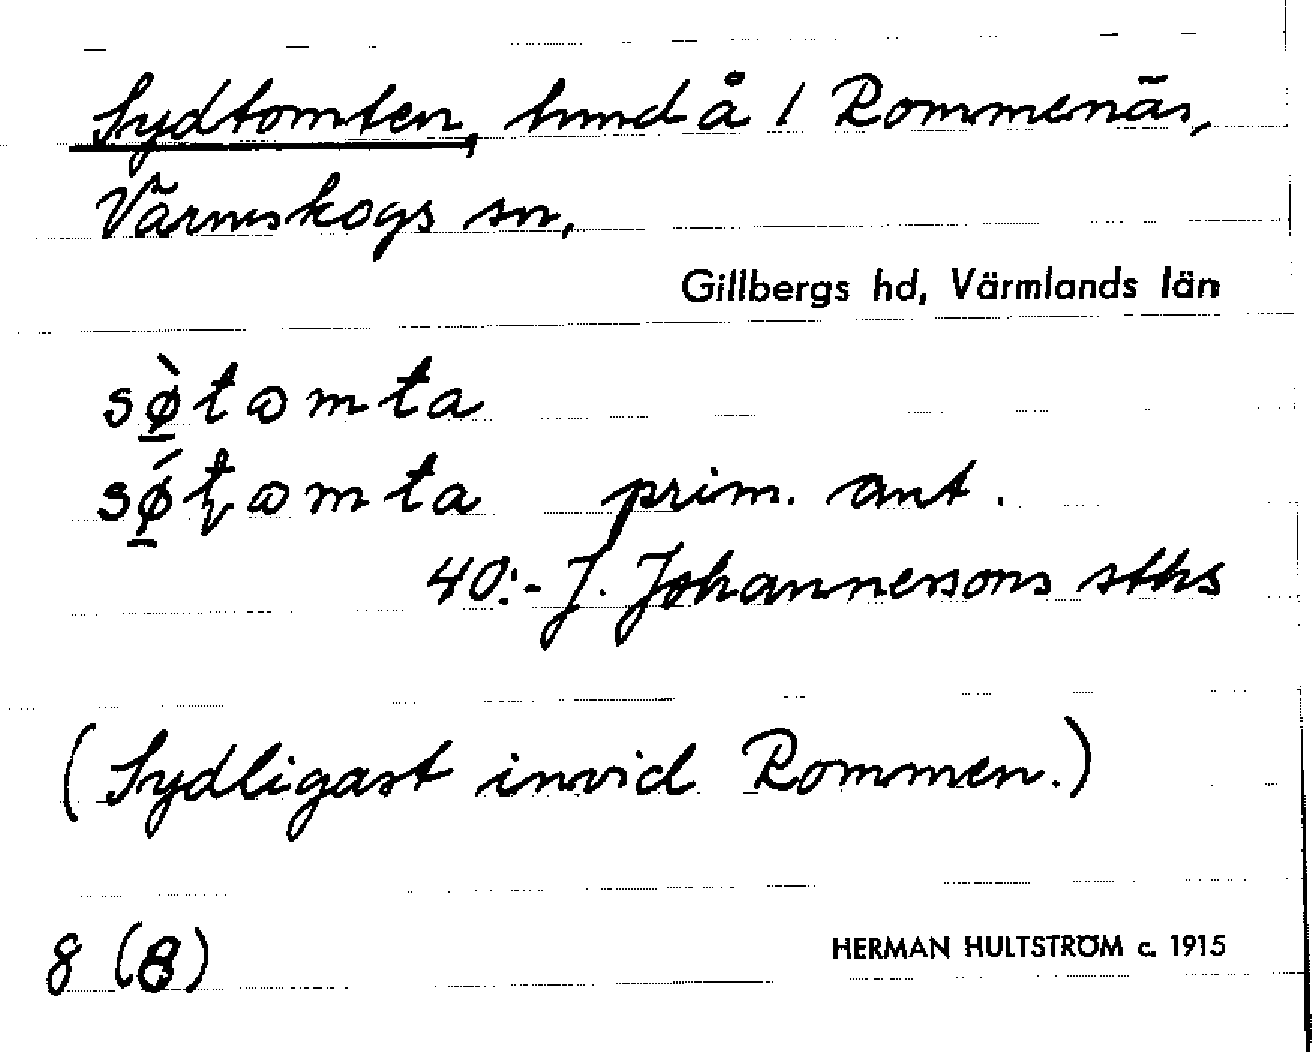 Sydtomten, lund å 1 Rommenäs,
Värmskogs sn,
Gillbergs hd, Värmlands län
sø̀tɷmta
sǿt̡ɷmta prim. ant.
40:- J. Johannessons sths
(Sydligast invid Rommen.)
8 (8)
HERMAN HULTSTRÖM c. 1915